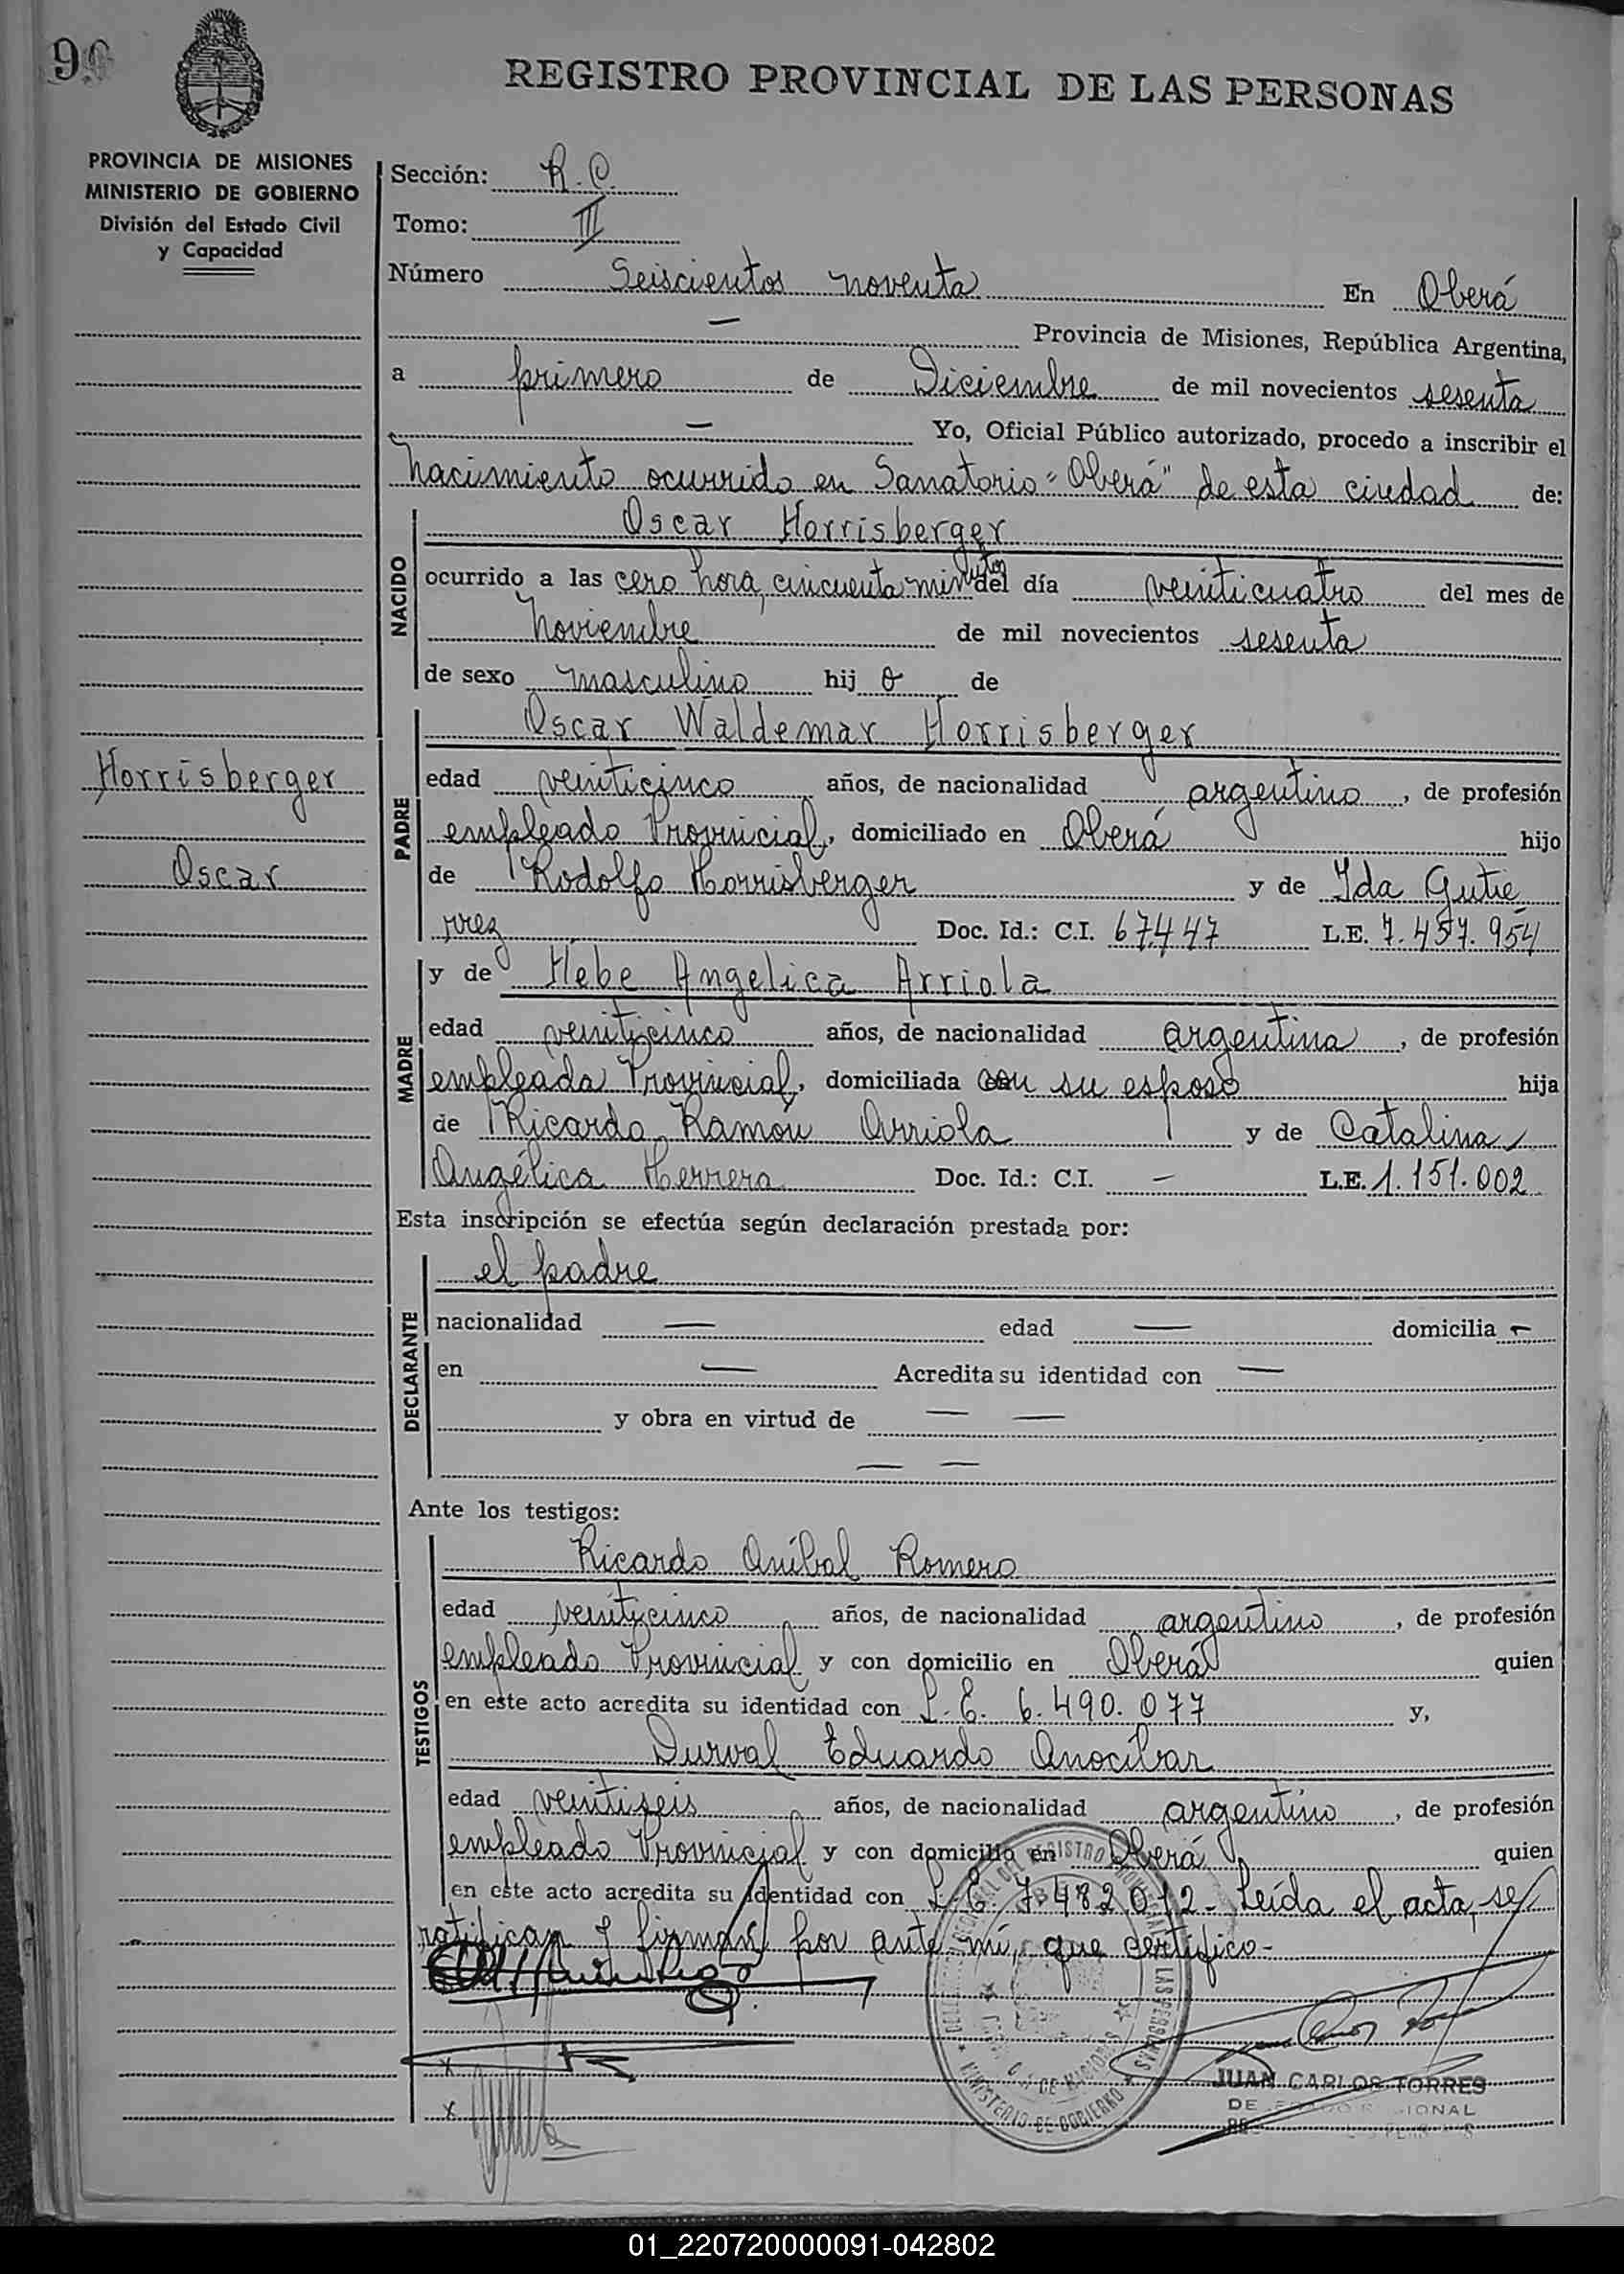 99
REGISTRO PROVINCIAL DE LAS PERSONAS
PROVINCIA DE MISIONES
MINISTERIO DE GOBIERNO
División del Estado Civil
y Capacidad
Sección: R. C.
Tomo: III
Número Seiscientos noventa En Oberá
— Provincia de Misiones, República Argentina,
a primero de Diciembre de mil novecientos sesenta
— Yo, Oficial Público autorizado, procedo a inscribir el
nacimiento ocurrido en Sanatorio "Oberá" de esta ciudad de:
NACIDO
Oscar Horrisberger
ocurrido a las cero hora, cincuenta minutos del día veinticuatro del mes de
Noviembre de mil novecientos sesenta
de sexo masculino hijo de
PADRE
Oscar Waldemar Horrisberger
Horrisberger
edad veinticinco años, de nacionalidad argentino, de profesión
empleado Provincial, domiciliado en Oberá hijo
Oscar
de Rodolfo Horrisberger y de Ida Gutie
rrez Doc. Id.: C.I. 67.447 L.E. 7.457.954
MADRE
y de Hebe Angelica Arriola
edad veinticinco años, de nacionalidad argentina, de profesión
empleada Provincial, domiciliada con su esposo hija
de Ricardo Ramón Arriola y de Catalina
Angélica Herrera Doc. Id.: C.I. — L.E. 1.151.002
Esta inscripción se efectúa según declaración prestada por:
DECLARANTE
el padre
nacionalidad — edad — domicilia —
en — Acredita su identidad con —
y obra en virtud de — —
— —
Ante los testigos:
TESTIGOS
Ricardo Aníbal Romero
edad veinticinco años, de nacionalidad argentino, de profesión
empleado Provincial y con domicilio en Oberá quien
en este acto acredita su identidad con L. E. 6.490.077 y,
Durval Eduardo Anocibar
edad veintiseis años, de nacionalidad argentino, de profesión
empleado Provincial y con domicilio en Oberá quien
en este acto acredita su identidad con L. E. 7.482.012 - Leída el acta, se
ratifican y firman por ante mí, que certifico -
x
x
JUAN CARLOS TORRES
MINISTERIO DE GOBIERNO
01_220720000091-042802